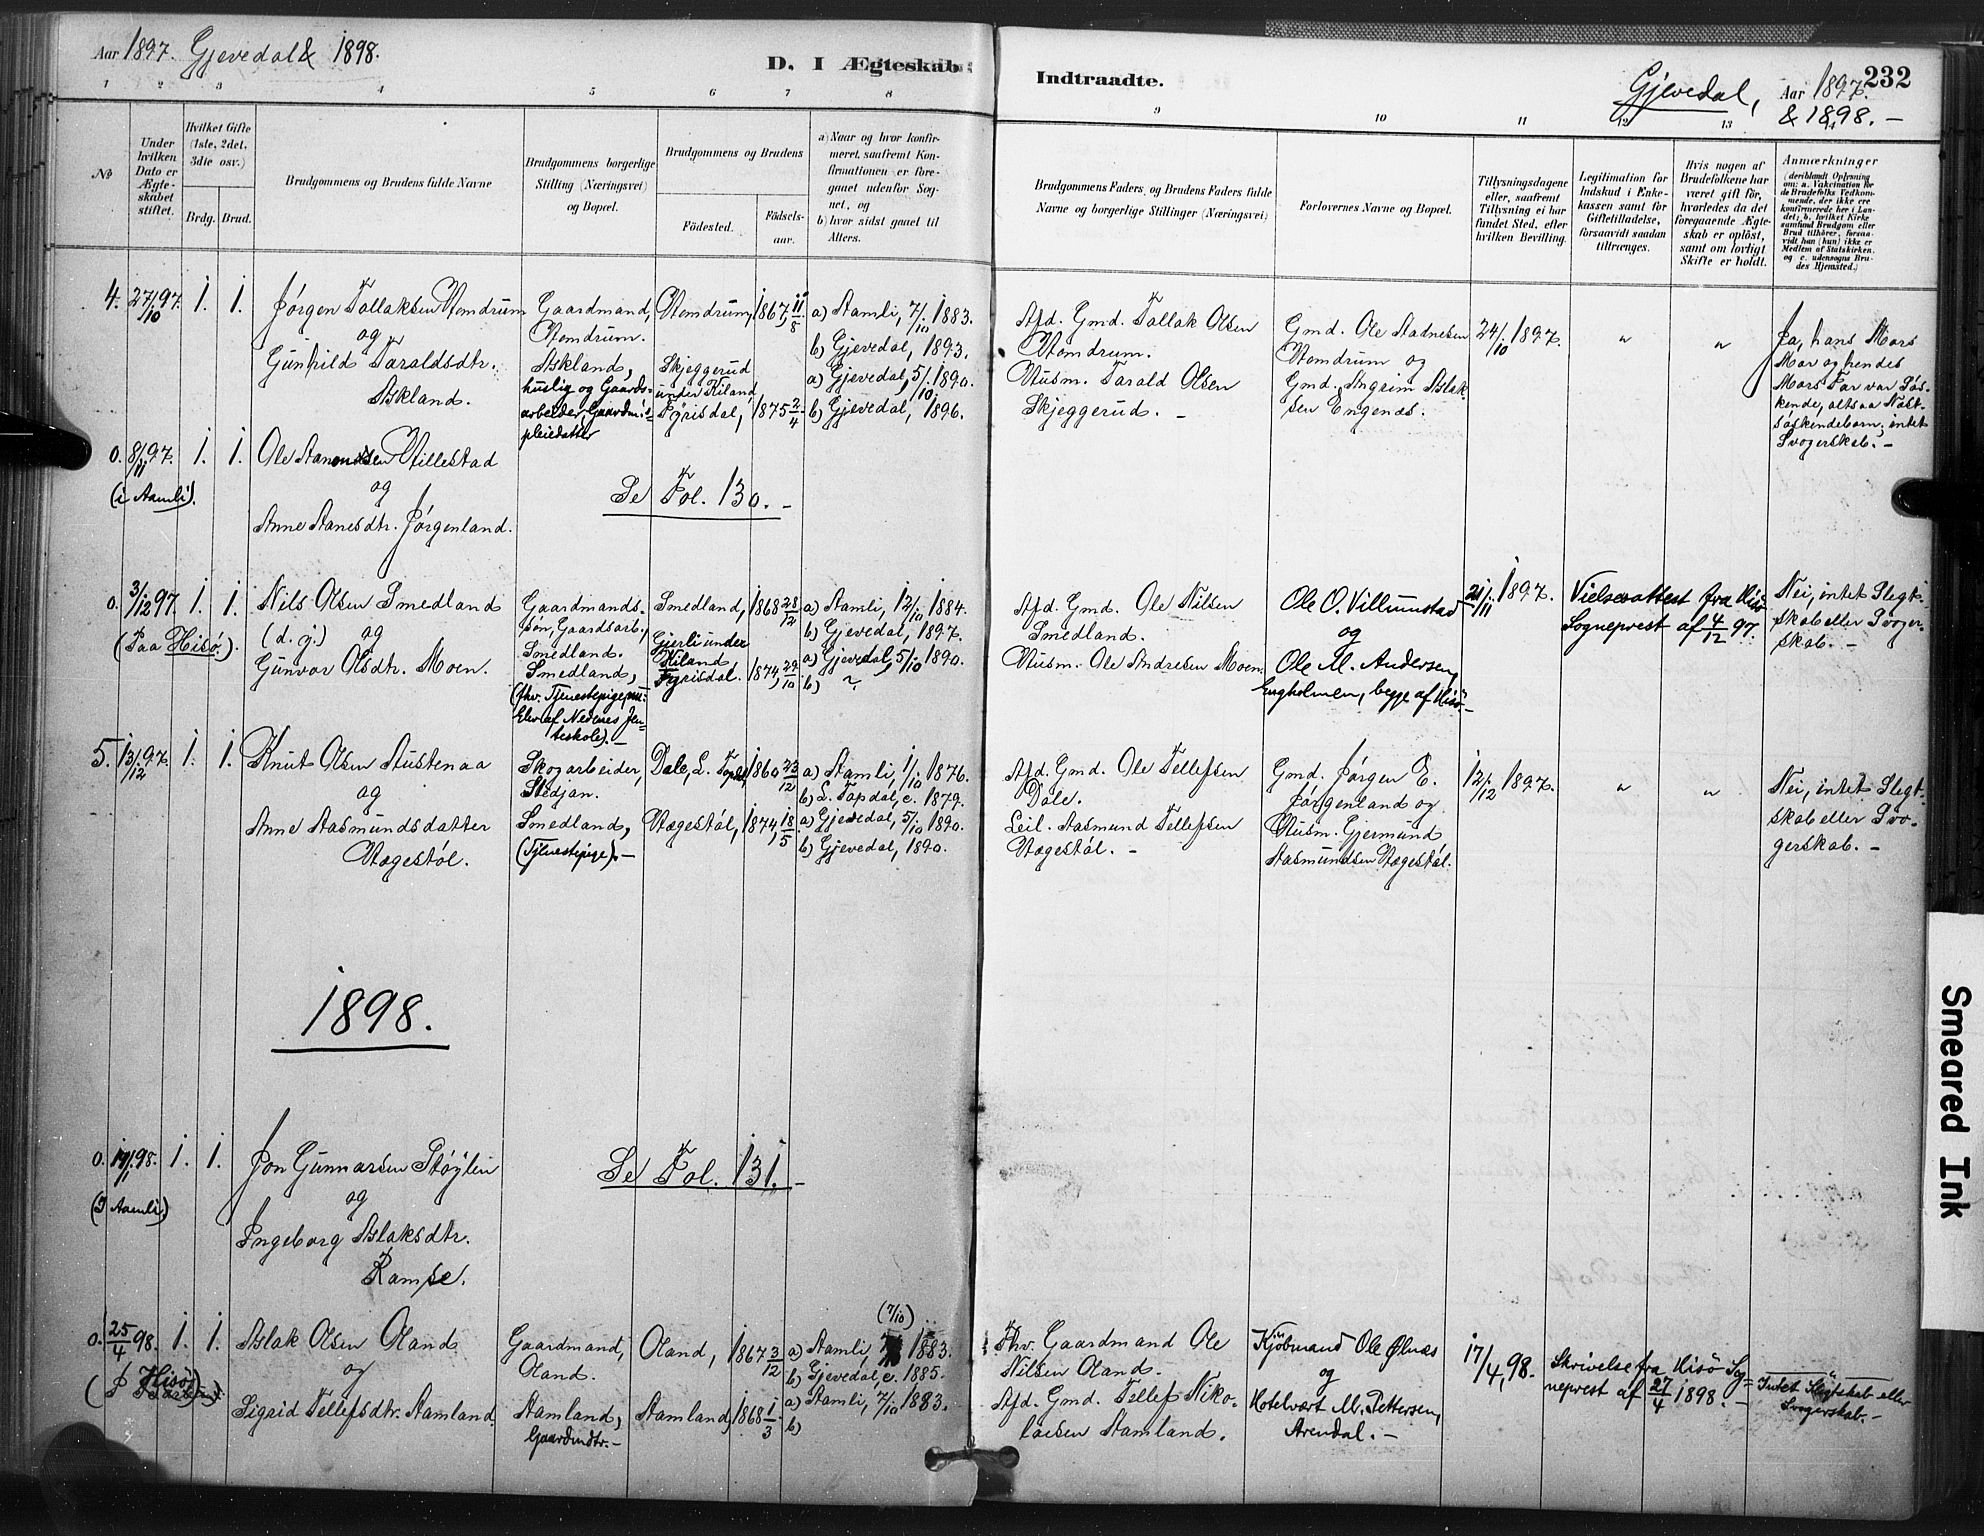 Aar 1897. Gjevedal & 1898.
D. I Ægteskab
Indtraadte.
Gjevedal, Aar 1897. 232
& 1898. —
1 2 3 4 5 6 7 8
9 10 11 12 13 14
No
Under hvilken Dato er Ægteskabet stiftet.
Hvilket Gifte (1ste, 2det, 3die osv.)
Brdg. Brud.
Brudgommens og Brudens fulde Navne
Brudgommens borgerlige Stilling (Næringsvei) og Bopæl.
Brudgommens og Brudens
Födested. Födselsaar.
a) Naar og hvor konfirmeret, saafremt Konfirmationen er foregaaet udenfor Sognet, og
b) hvor sidst gaaet til Alters.
Brudgommens Faders, og Brudens Faders fulde Navne og borgerlige Stillinger (Næringsvei)
Forlovernes Navne og Bopæl.
Tillysningsdagene eller, saafremt Tillysning ei har fundet Sted, efter hvilken Bevilling.
Legitimation for Indskud i Enkekassen samt for Giftetilladelse, forsaavidt saadan tiltrænges.
Hvis nogen af Brudefolkene har været gift før, hvorledes da det foregaaende Ægteskab er oplöst, samt om lovligt Skifte er holdt.
Anmærkninger (deriblandt Oplysning om: a. Vakcination for de Brudefolks Vedkommende, der ikke ere konfirmerede her i Landet; b. hvilket Kirkesamfund Brudgom eller Brud tilhörer, forsaavidt han (hun) ikke er Medlem af Statskirken. og c. udensogns Brudes Hjemsted.)
4. 27/10 97. 1. 1.
Jørgen Tallaksen Momdrum
og
Gunhild Taraldsdtr.
Askland.
Gaardmand,
Momdrum.
Askland,
huslig og Gaards-
arbeider, Gaardm:s
pleiedatter
Momdrum, 1867, 11/8
Skjeggerud
under Kiland,
Tørisdal, 1875 2/4
a) Aamli, 7/10 1883.
b) Gjevedal, 1893.
a) Gjevedal, 5/10 1890.
b) Gjevedal, 1896.
Afd. Gmd. Tallak Olsen
Momdrum.
Husm. Tarald Olsen
Skjeggerud. —
Gmd. Ole Aadnesen
Momdrum og
Gmd. Angrim Aslak-
sen Engenæs.
24/10 1897. " "
Ja, hans Mors
Mor og hendes
Mors Far var Søs-
kende, altsaa Næst-
søskendebørn, intet
Svogerskab. —
0. 8/11 97. 1. 1.
(i Aamli).
Ole Aanondsen Hillestad
og
Anne Aanesdtr. Jørgenland.
Se Fol. 130. —
0. 3/12 97. 1. 1.
(Paa Hisø.)
Nils Olsen Smedland
(d. y.) og
Gunvor Olsdtr. Moen.
Gaardmands-
søn, Gaardsarb.,
Smedland.
Smedland,
(fhv. Tjenestepige, nu
Elev af Nedenes Jen-
teskole). —
Smedland, 1868 28/12
Gjerli under
Kiland
Fyrisdal. 1874, 29/10
a) Aamli, 12/10 1884.
b) Gjevedal, 1897.
a) Gjevedal, 5/10 1890.
b) "
Afd. Gmd. Ole Nilsen
Smedland.
Husm. Ole Andresen Moen.
Ole O. Villumstad
og
Ole M. Andersen,
Engholmen, begge af Hisö. —
21/11 1897.
Vielsesattest fra Hisö
Sogneprest af 4/12 97.
Nei, intet Slegt-
skab eller Svoger-
skab. —
5. 13/12 97. 1. 1.
Knut Olsen Austenaa
og
Anne Aasmundsdatter
Hægestøl.
Skogarbeider,
Stedjan.
Smedland,
(Tjenestepige). —
Dale, L. Topdal, 1860 23/12
Hægestøl, 1874, 18/5
a) Aamli, 1/10 1876.
b) L. Topdal, c. 1879.
a) Gjevedal, 5/10 1890.
b) Gjevedal, 1890.
Afd. Gmd. Ole Tellefsen
Dale.
Leil. Aasmund Tellefsen
Hægestøl. —
Gmd. Jørgen E.
Jørgenland og
Husm. Gjermund
Aasmundsen Hægestøl.
12/12 1897. " "
Nei, intet Slegt-
skab eller Svo-
gerskab. —
1898.
0. 19/1 98. 1. 1.
(I Aamli.)
Jon Gunnarsen Støylin
og
Ingeborg Aslaksdtr.
Ramse.
Se Fol. 131. —
0. 25/4 98. 1. 1.
Hisø
Aslak Olsen Oland
og
Sigrid Tellefsdtr. Aamland.
Gaardmand,
Oland.
Aamland,
Gaardmdtr. —
Oland, 1867 3/12
Aamland, 1868 1/3
(7/10)
a) Aamli 1883.
b) Gjevedal, c. 1885.
a) Aamli, 7/10 1883.
b)
Fhv. Gaardmand Ole
Nilsen Oland.
Afd. Gmd. Tellef Niko-
laisen Aamland.
Kjöbmand Ole Ølnæs
og
Hotelvært M. Pettersen,
Arendal. —
17/4, 98.
Skrivelse fra Hisö Sog-
neprest af 27/4 1898. —
"
Intet Slegtskab eller
Svogerskab. —
Smeared Ink